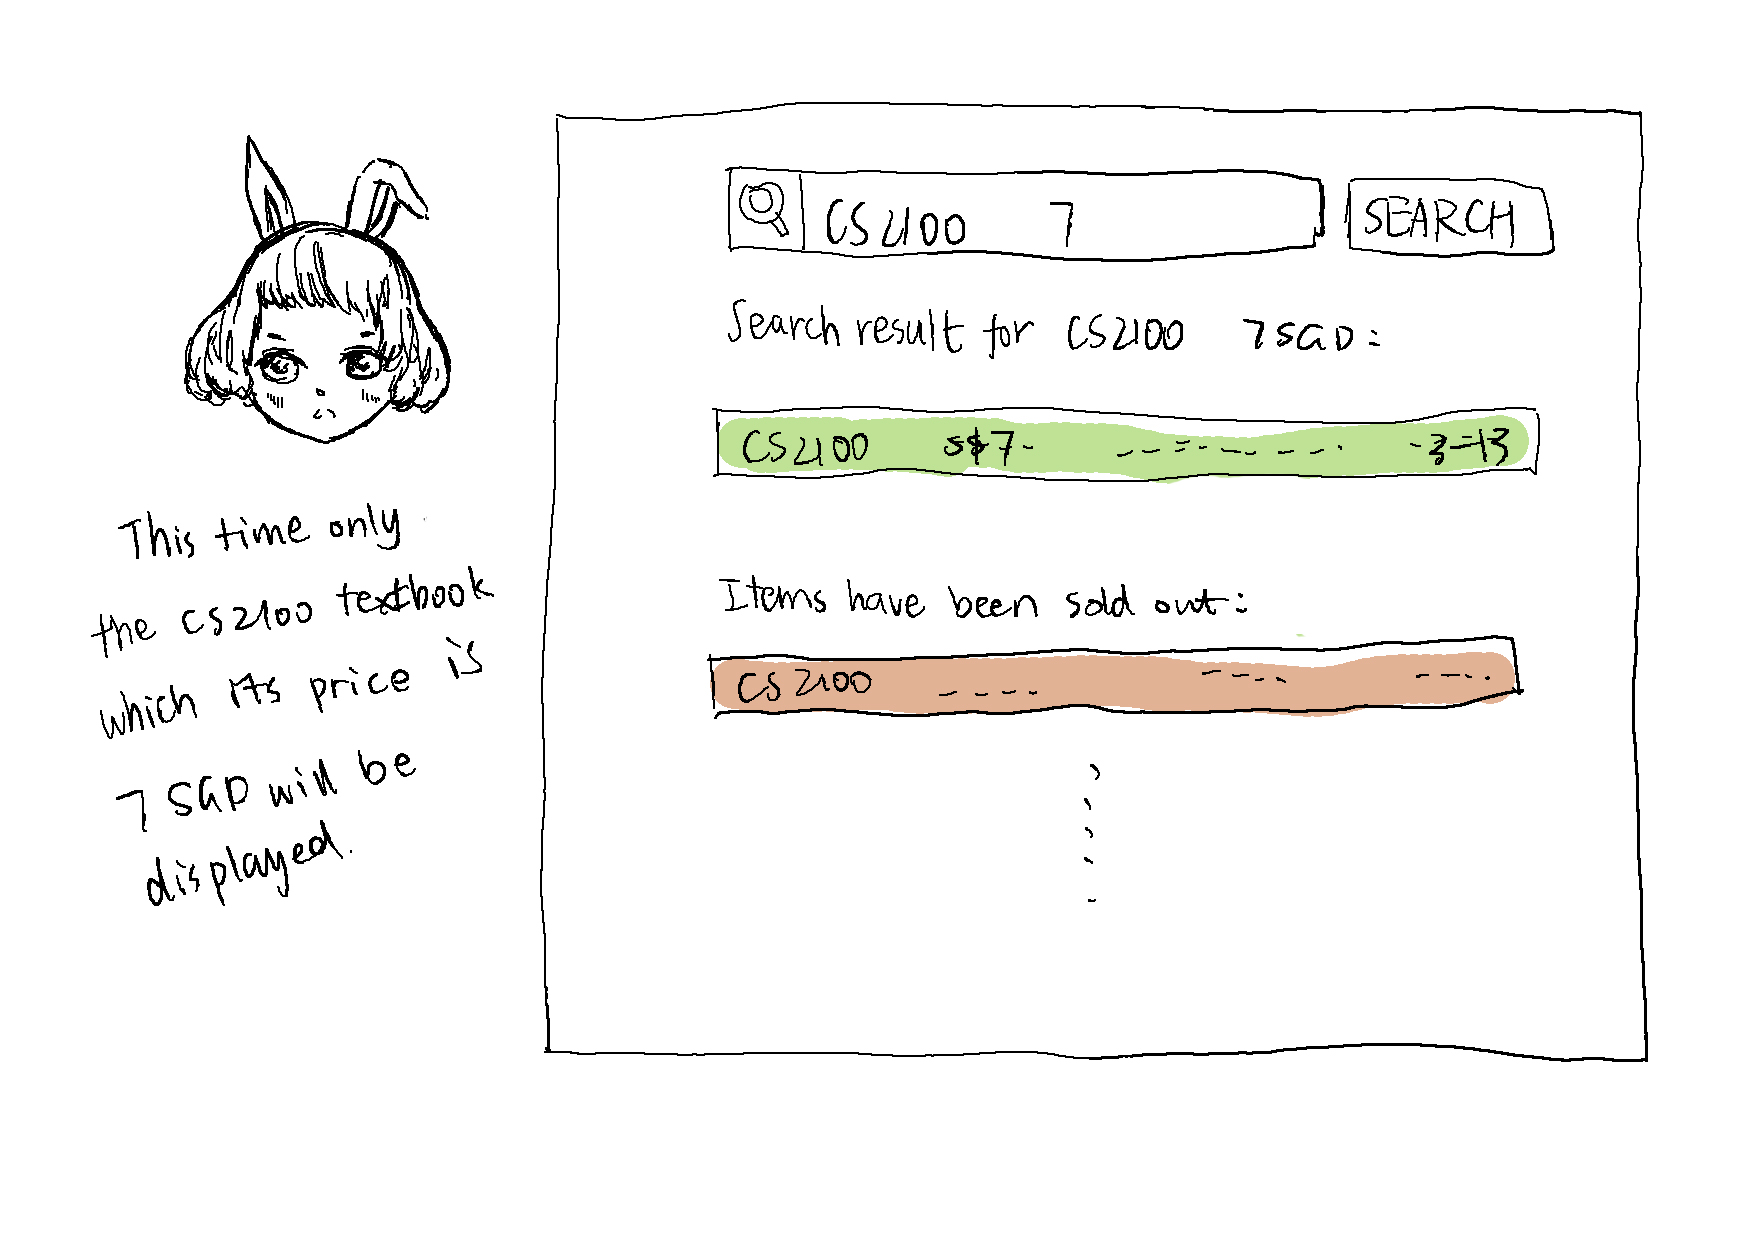 This time only
the CS2100 textbook
which its price is
7 SGD will be
displayed.
CS2100 7
SEARCH
Search result for CS2100 7 SGD:
CS2100 S$7-
Items have been sold out:
CS2100